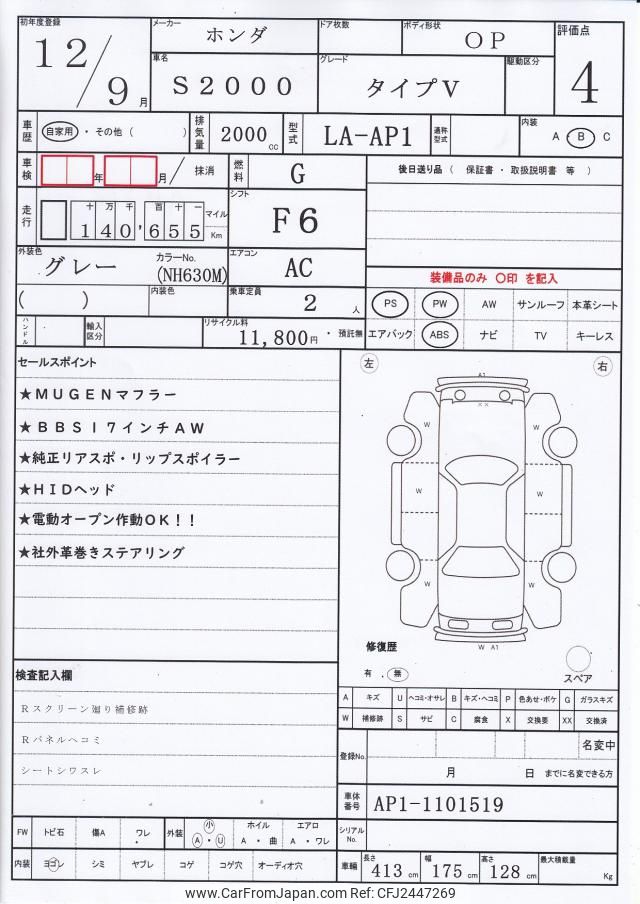 初年度登録 メーカー ドア枚数 ボディ形状 評価点
12/9月 ホンダ OP 4
車名 グレード 駆動区分
S2000 タイプV
車歴 自家用 ・ その他 ( ) 排気量 2000cc 型式 LA-AP1 通称型式 内装 A ・ B C
車検 年 月 / 抹消 燃料 G 後日送り品 ( 保証書 ・ 取扱説明書 等 )
走行 十 万 千 百 十 一 マイル シフト
140,655 Km F6
外装色 カラーNo. エアコン 装備品のみ 〇印 を記入
グレー (NH630M) AC
( ) 内装色 乗車定員 2 人 PS PW AW サンルーフ 本革シート
ハンドル 輸入区分 リサイクル料 11,800円 ・ 預託無 エアバック ABS ナビ TV キーレス
セールスポイント
★MUGENマフラー
★BBS17インチAW
★純正リアスポ・リップスポイラー
★HIDヘッド
★電動オープン作動OK！！
★社外革巻きステアリング
左 右
A1
XX
W W
W W
W W
W A1
修復歴
有 . 無
スペア
検査記入欄
Rスクリーン廻り補修跡
Rパネルヘコミ
シートシワスレ
A キズ U ヘコミ・オサレ B キズ・ヘコミ P 色あせ・ボケ G ガラスキズ
W 補修跡 S サビ C 腐食 X 交換要 XX 交換済
登録No. 名変中
月 日 までに名変できる方
車体番号 AP1-1101519
シリアルNo.
FW トビ石 傷A ワレ 外装 小 A・U ホイル A ・ 曲 エアロ A ・ ワレ
内装 ヨゴレ シミ ヤブレ コゲ コゲ穴 オーディオ穴
車輌 長さ 413 cm 幅 175 cm 高さ 128 cm 最大積載量 Kg
www.CarFromJapan.com Ref: CFJ2447269